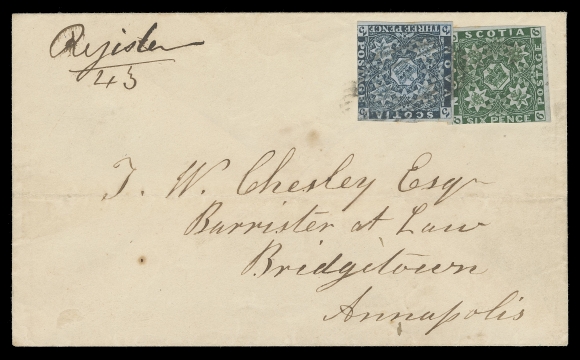 Register
43
THREE PENCE
POS
NOVA
SCOTIA
SCOTIA
POSTAGE
SIX PENCE
N
T. W. Chesley Esqr
Barrister at Law
Bridgetown
Annapolis